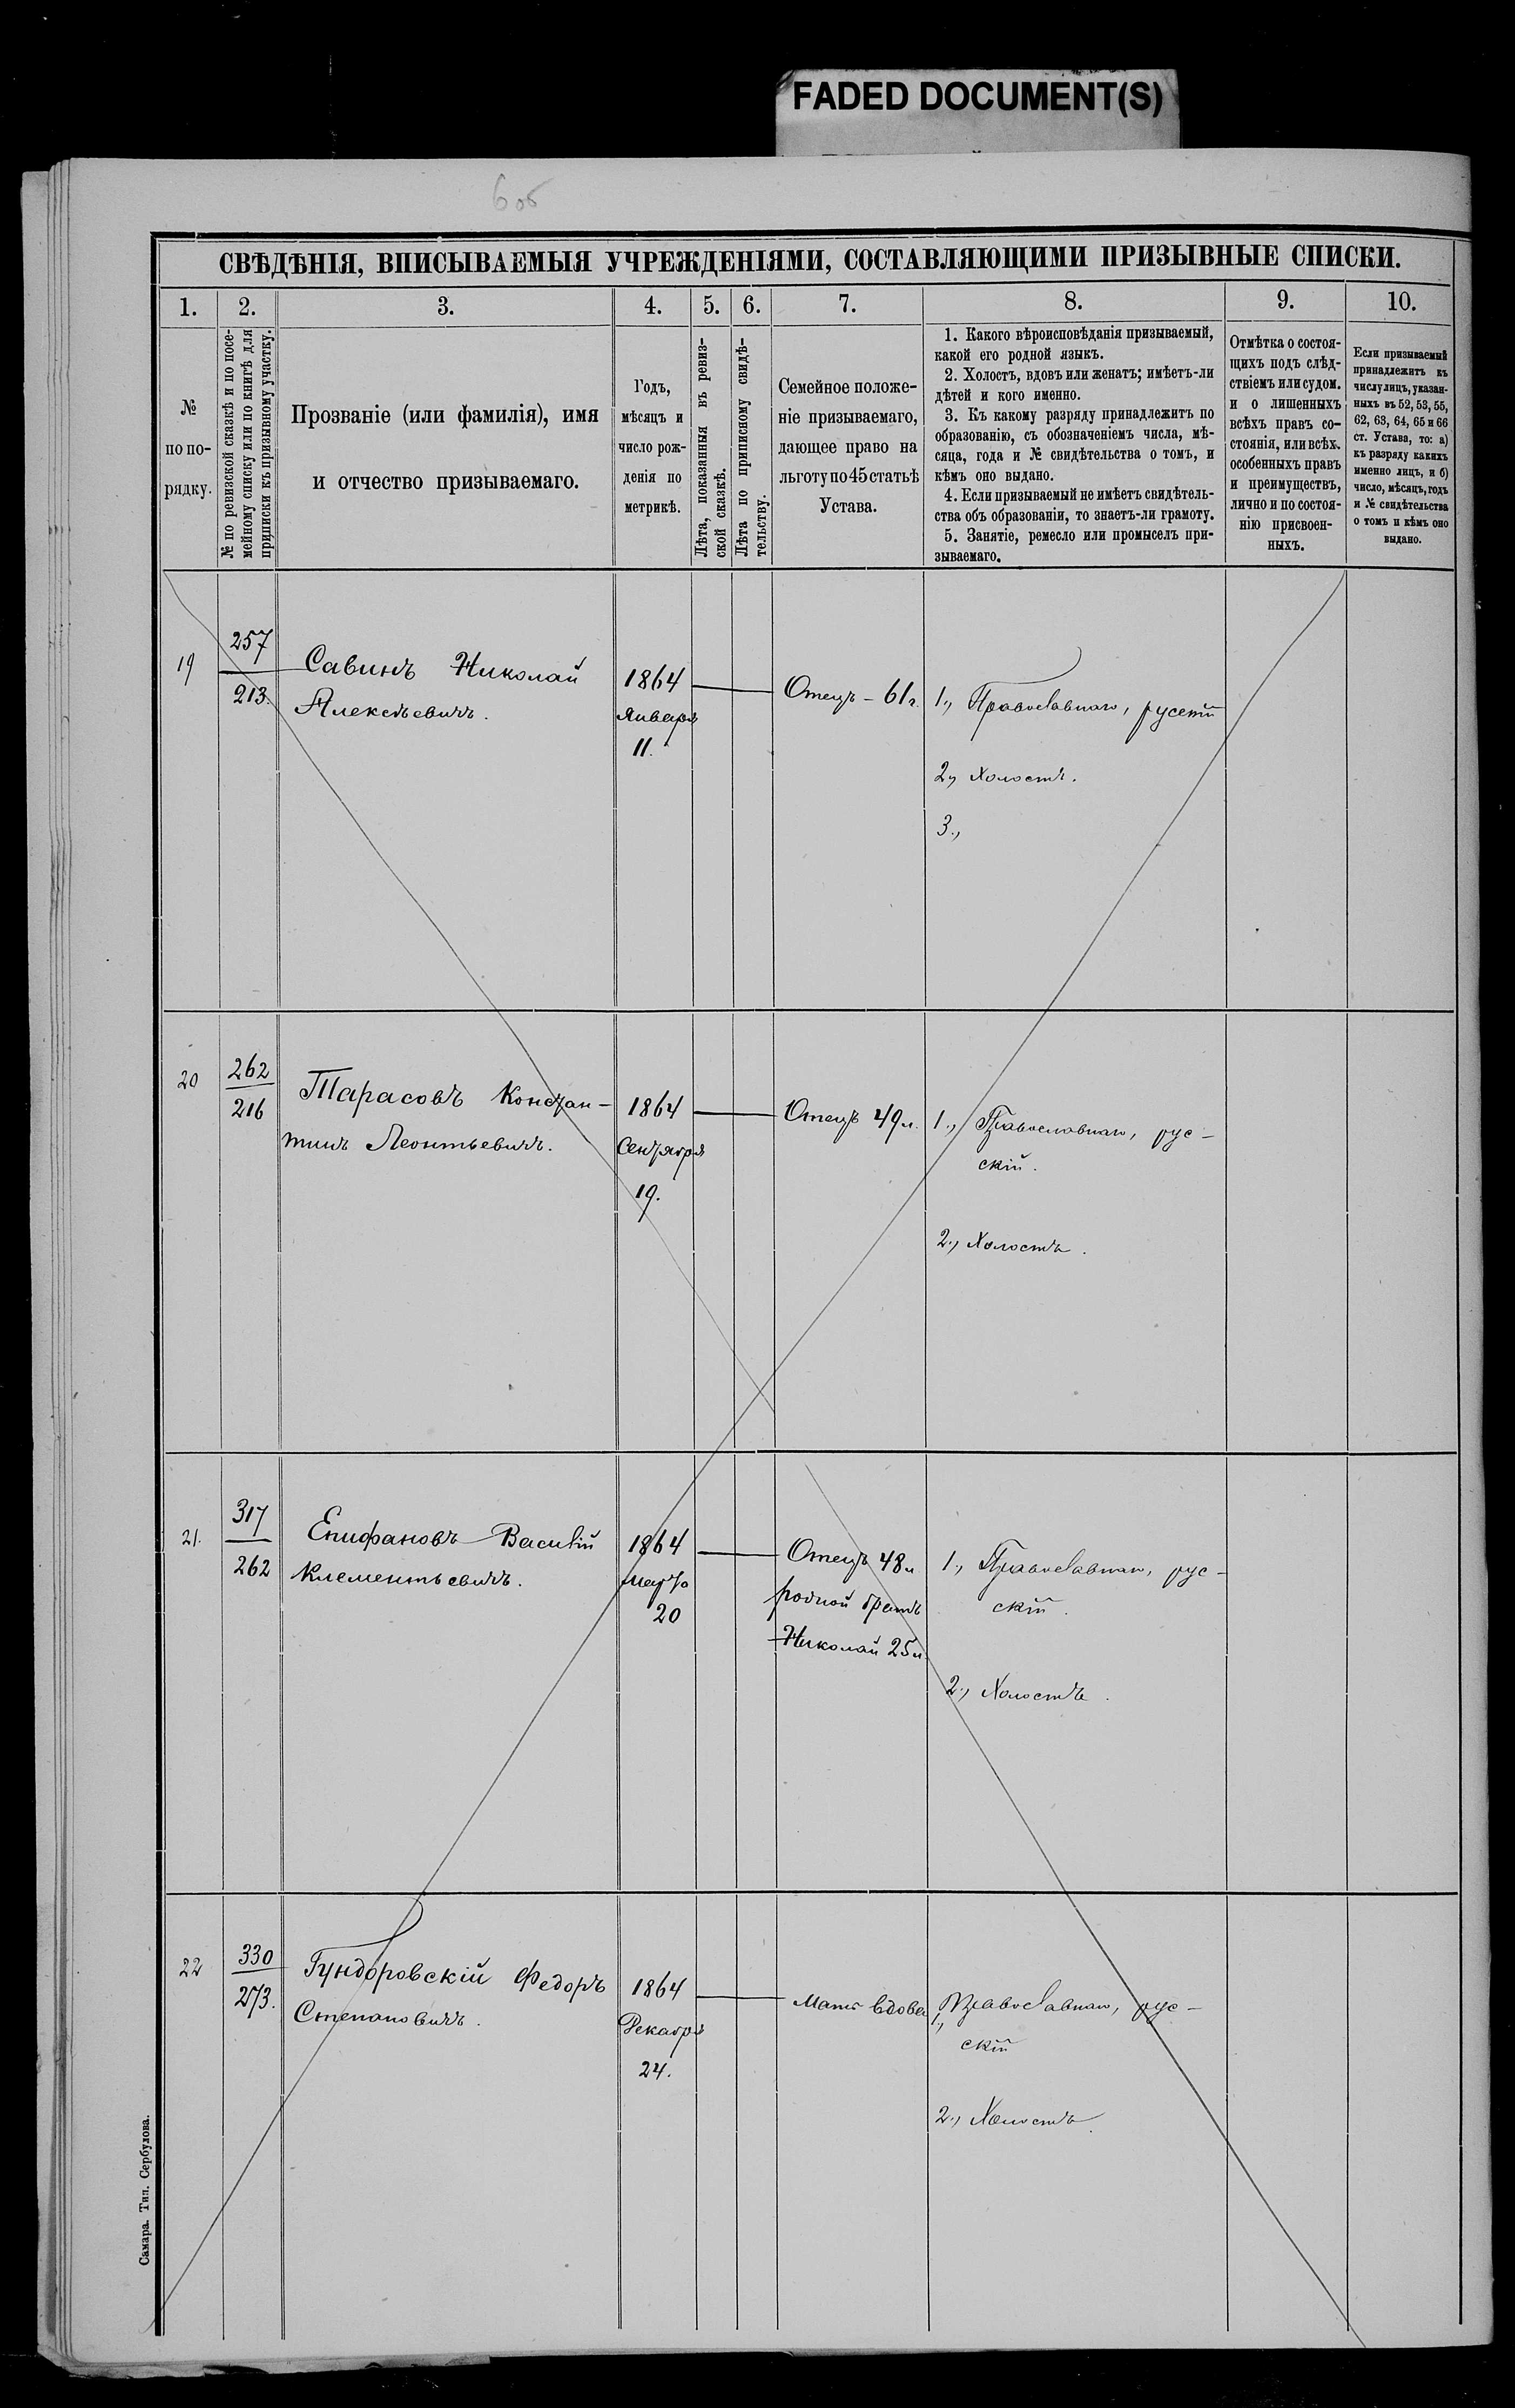 FADED DOCUMENT(S)
6об
СВѢДѢНІЯ, ВПИСЫВАЕМЫЯ УЧРЕЖДЕНІЯМИ, СОСТАВЛЯЮЩИМИ ПРИЗЫВНЫЕ СПИСКИ.
1.
2.
3.
4.
5.
6.
7.
8.
9.
10.
№
по по-
рядку.
№ по ревизской сказкѣ и по посе-
мейному списку или по книгѣ для
приписки къ призывному участку.
Прозваніе (или фамилія), имя
и отчество призываемаго.
Годъ,
мѣсяцъ и
число рож-
денія по
метрикѣ.
Лѣта, показанныя въ ревиз-
ской сказкѣ.
Лѣта по приписному свидѣ-
тельству.
Семейное положе-
ніе призываемаго,
дающее право на
льготу по 45 статьѣ
Устава.
1. Какого вѣроисповѣданія призываемый,
какой его родной языкъ.
2. Холостъ, вдовъ или женатъ; имѣетъ-ли
дѣтей и кого именно.
3. Къ какому разряду принадлежитъ по
образованію, съ обозначеніемъ числа, мѣ-
сяца, года и № свидѣтельства о томъ, и
кѣмъ оно выдано.
4. Если призываемый не имѣетъ свидѣтель-
ства объ образованіи, то знаетъ-ли грамоту.
5. Занятіе, ремесло или промыселъ при-
зываемаго.
Отмѣтка о состоя-
щихъ подъ слѣд-
ствіемъ или судом.
и о лишенныхъ
всѣхъ правъ со-
стоянія, или всѣх.
особенныхъ правъ
и преимуществъ,
лично и по состоя-
нію присвоен-
ныхъ.
Если призываемый
принадлежитъ къ
числу лицъ, указан-
ныхъ въ 52, 53, 55,
62, 63, 64, 65 и 66
ст. Устава, то: а)
къ разряду какихъ
именно лицъ, и б)
число, мѣсяцъ, годъ
и № свидѣтельства
о томъ и кѣмъ оно
выдано.
19
257
213.
Савинъ Николай
Алексѣевичъ.
1864
Января
11.
Отецъ – 61 г.
1., Православнаго, русскій
2., Холостъ.
3.,
20
262
216
Тарасовъ Констан-
тинъ Леонтьевичъ.
1864
Сентября
19.
Отецъ 49 л.
1., Православнаго, рус-
скій.
2., Холостъ.
21.
317
262
Епифановъ Василій
Клементьевичъ.
1864
Марта
20
Отецъ 48 л
родной братъ
Николай 25 л
1., Православнаго, рус-
скій.
2., Холостъ.
22
330
273.
Гундоровскій Федоръ
Степановичъ.
1864
Декабря
24.
Мать вдова
1., Православнаго, рус-
скій
2., Холостъ.
Самара. Тип. Сербулова.